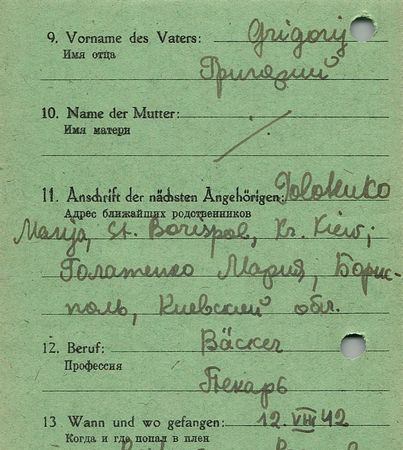 9. Vorname des Vaters: Grigorij
Имя отца
Григорий
10. Name der Mutter: /
Имя матери
11. Anschrift der nächsten Angehörigen: Golotenko
Адрес ближайших родственников
Marija, St. Borispol, Kr. Kiew;
Голатенко Мария, Борис-
поль, Киевский обл.
12. Beruf: Bäcker
Профессия
Пекарь
13 Wann und wo gefangen: 12. VIII 42
Когда и где попал в плен